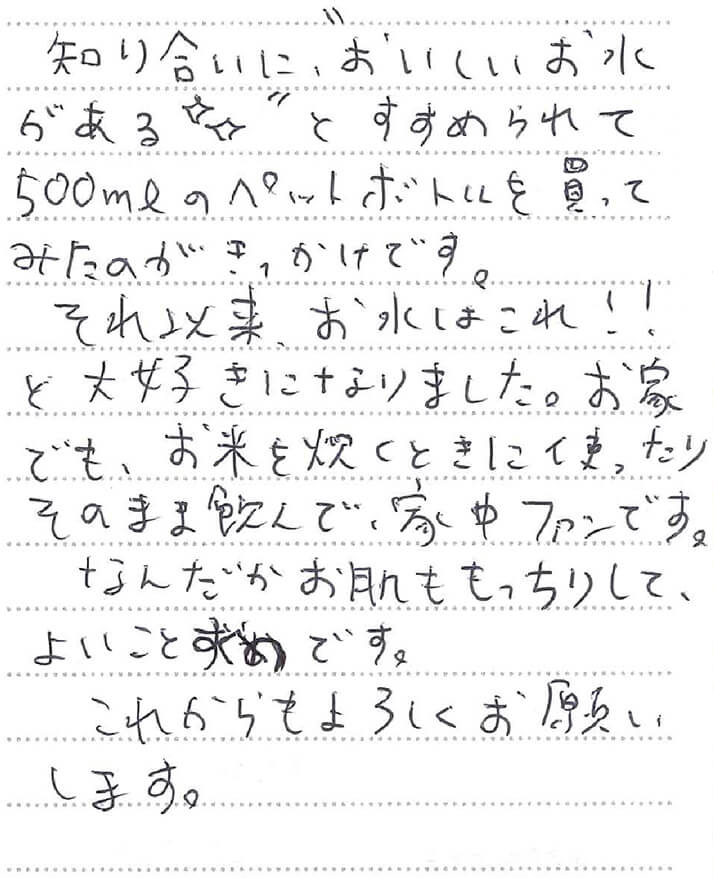 知り合いに、"おいしいお水
がある☆☆"とすすめられて
500mlのペットボトルを買って
みたのがきっかけです。
それ以来、お水はこれ!!
と大好きになりました。お家
でも、お米を炊くときに使ったり
そのまま飲んで、家中ファンです。
なんだかお肌ももっちりして、
よいこと求めです。
これからもよろしくお願い
します。